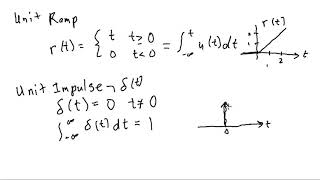 Unit Ramp
r(t) = { t t≥0 = ∫_{-∞}^{t} u(t) dt
0 t<0
r(t)
1 2 t
Unit Impulse → δ(t)
δ(t) = 0 t≠0
∫_{-∞}^{∞} δ(t) dt = 1
t
0